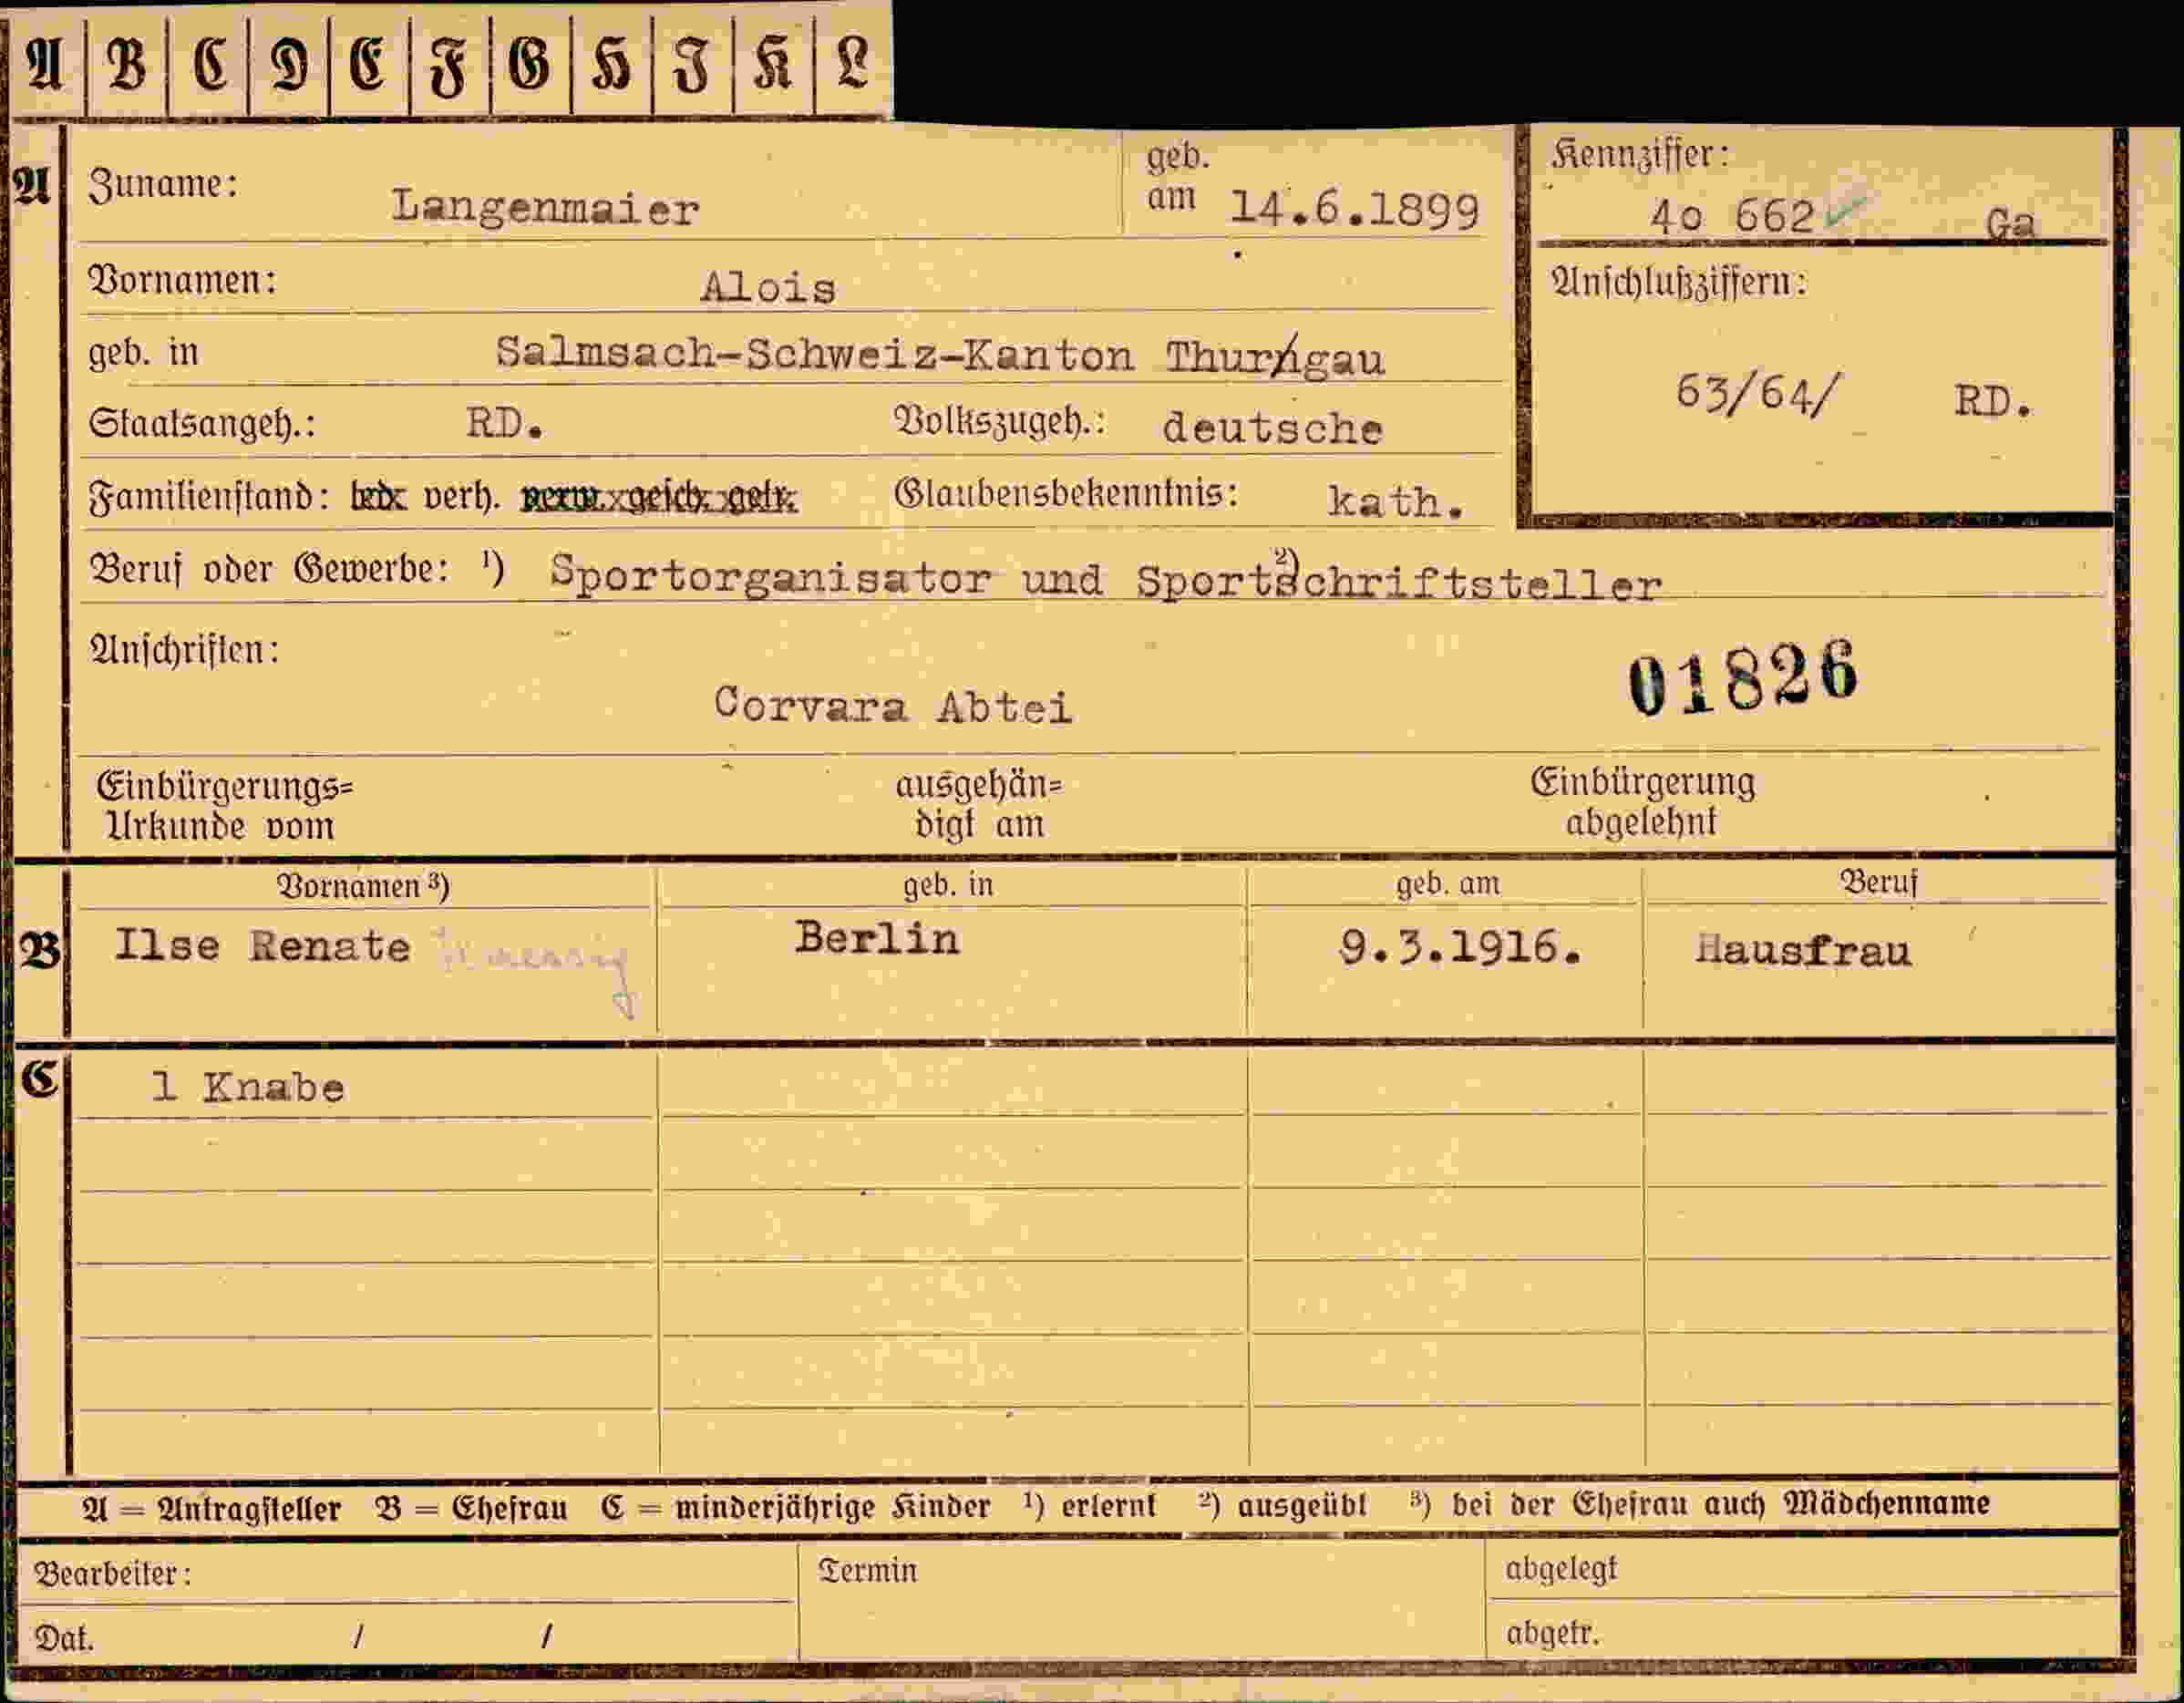 A B C D E F G H J K L
A Zuname: Langenmaier geb. am 14.6.1899
Kennziffer: 4o 662 ✓ Ga
Vornamen: Alois
Anschlußziffern:
geb. in Salmsach-Schweiz-Kanton Thurgau
63/64/ RD.
Staatsangeh.: RD. Volkszugeh.: deutsche
Familienstand: led. verh. verw. gesch. getr. Glaubensbekenntnis: kath.
Beruf oder Gewerbe: ¹) Sportorganisator und Sportschriftsteller ²)
Anschriften:
Corvara Abtei
01826
Einbürgerungs= ausgehän= Einbürgerung
Urkunde vom digt am abgelehnt
Vornamen ³) geb. in geb. am Beruf
B Ilse Renate Berlin 9.3.1916. Hausfrau
C 1 Knabe
A = Antragsteller B = Ehefrau C = minderjährige Kinder ¹) erlernt ²) ausgeübt ³) bei der Ehefrau auch Mädchenname
Bearbeiter: Termin abgelegt
Dat. / / abgetr.